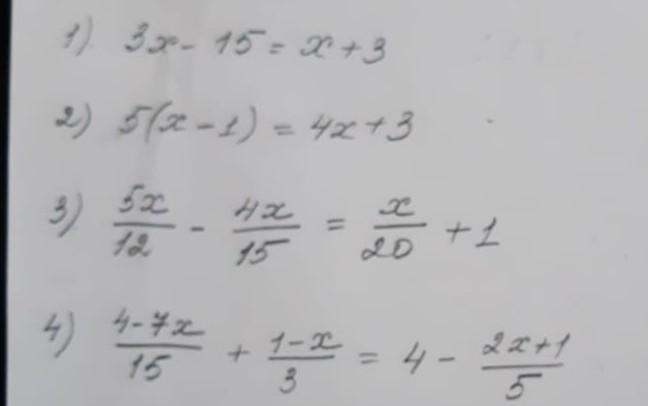 1) 3x - 15 = x + 3
2) 5(x - 1) = 4x + 3
3) 5x/12 - 4x/15 = x/20 + 1
4) 4-7x/15 + 1-x/3 = 4 - 2x+1/5